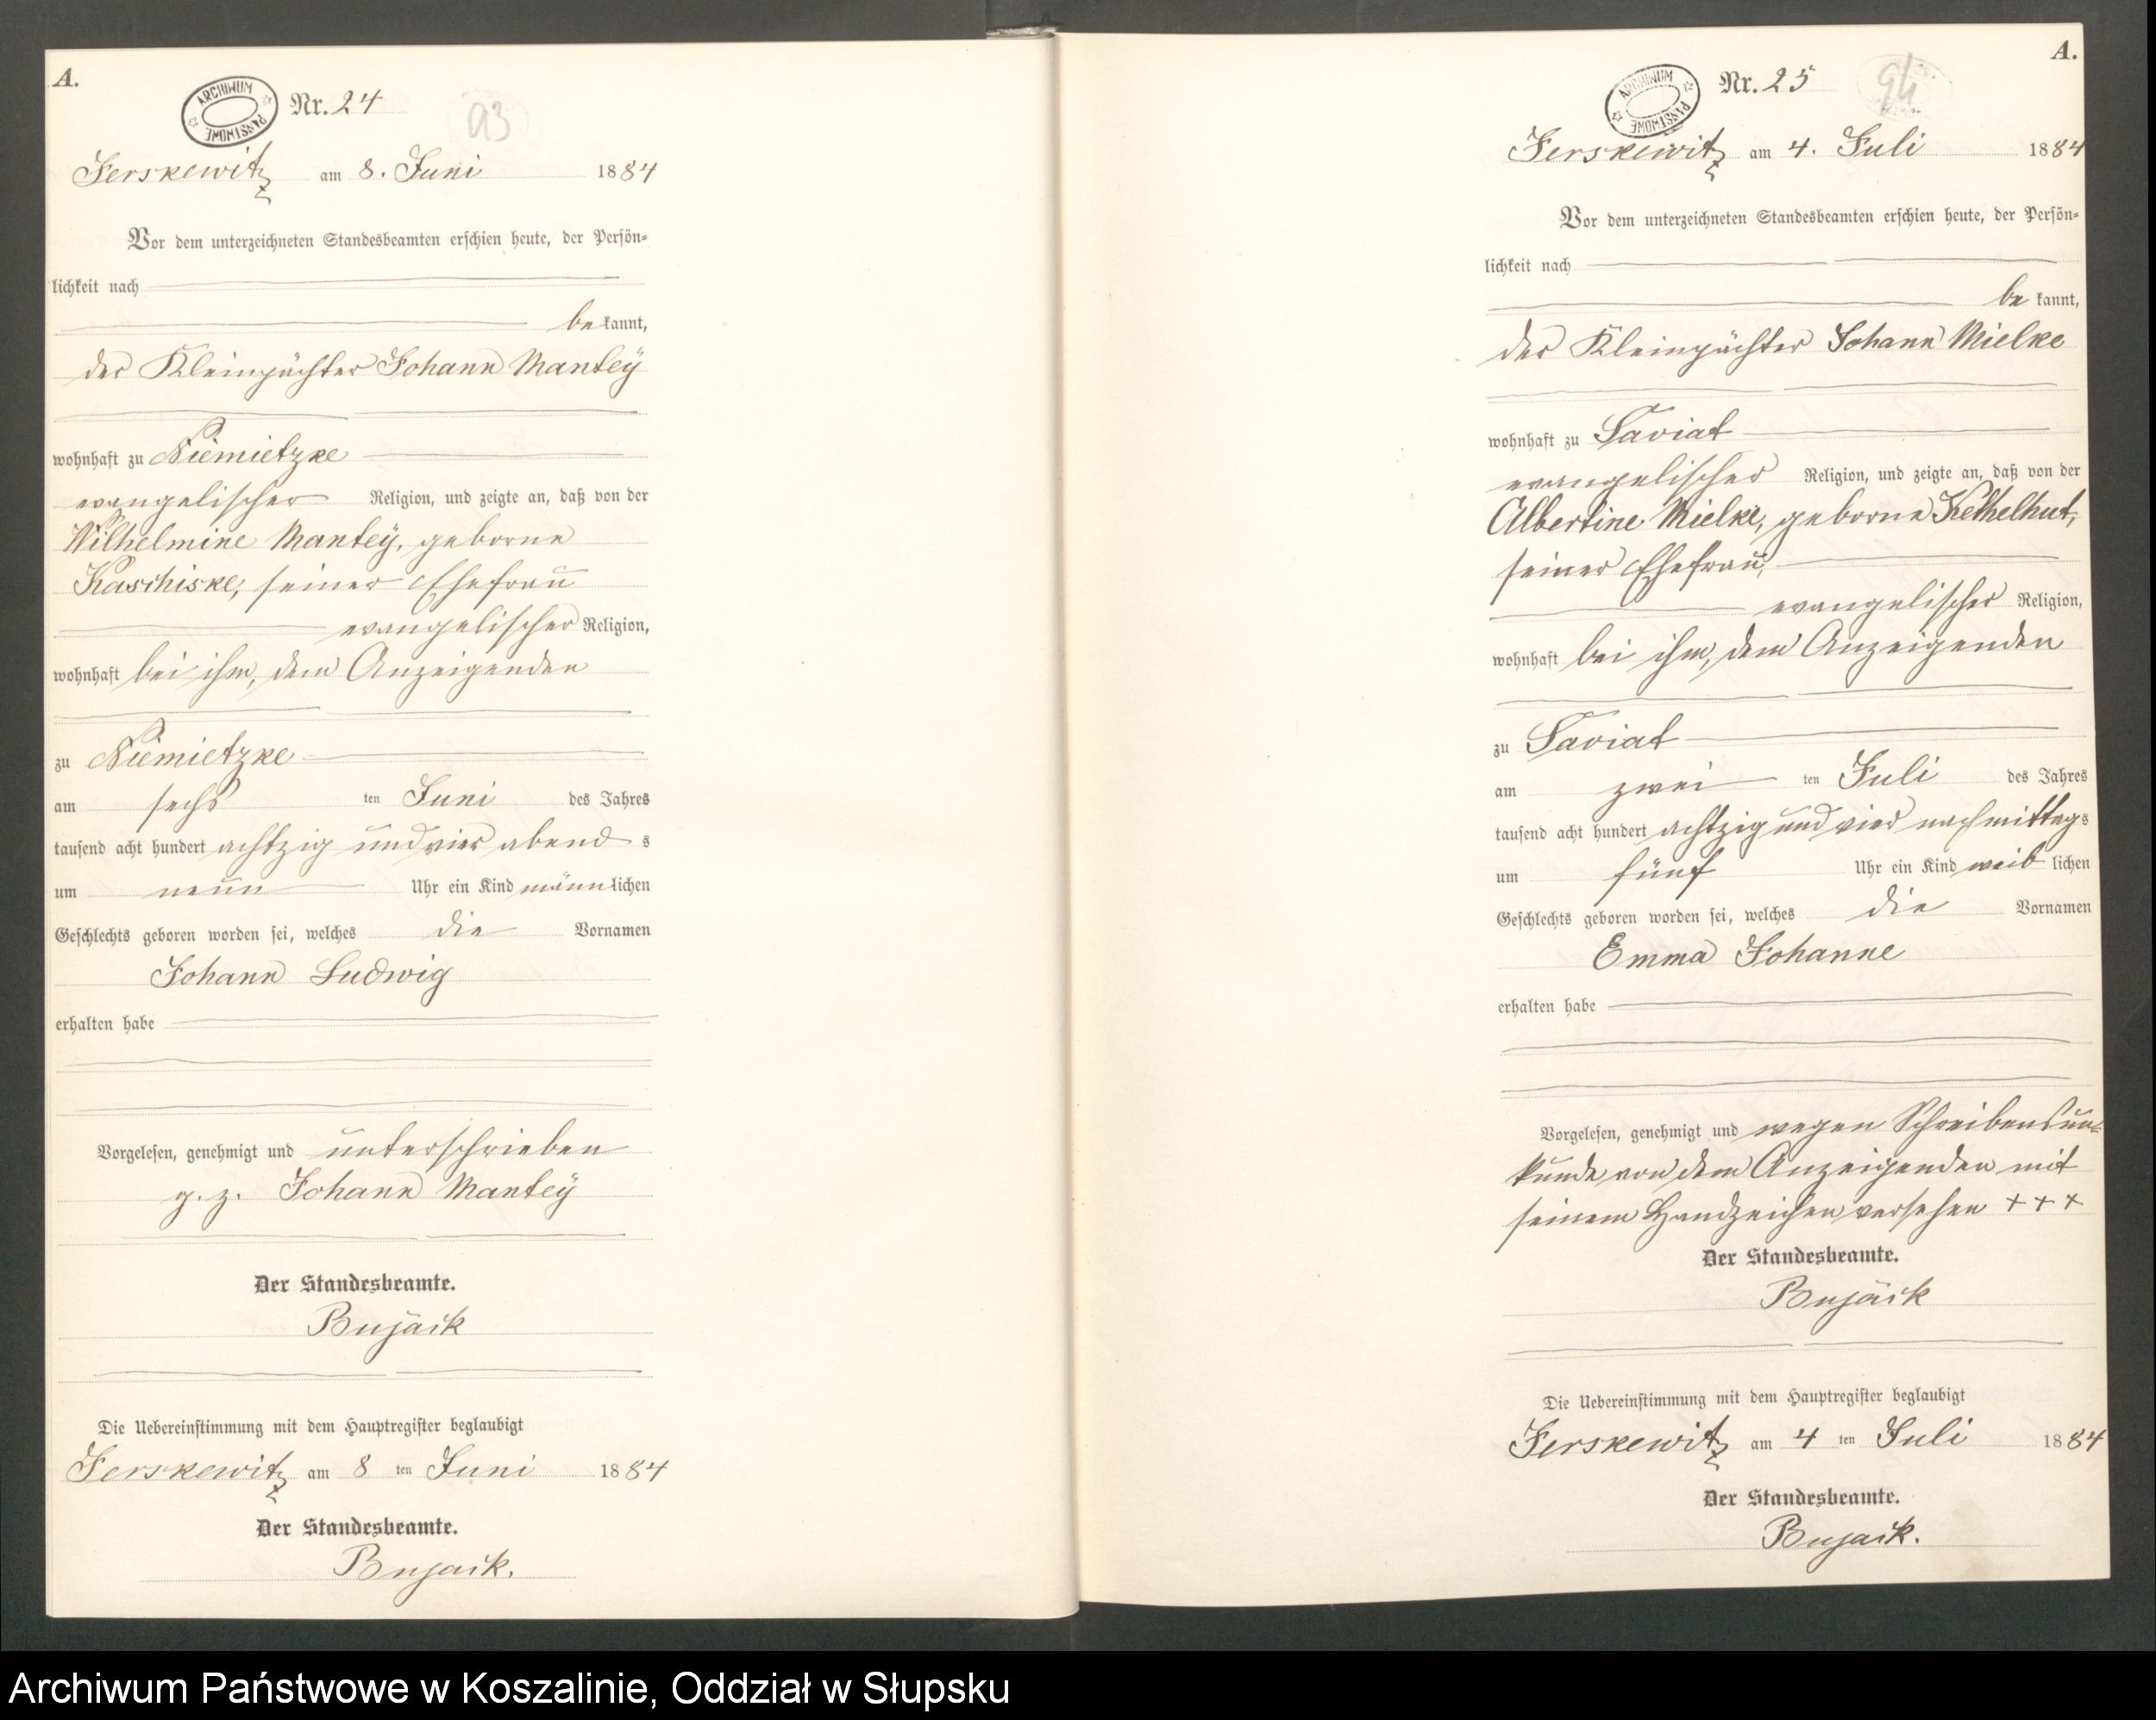 A.
ARCHIWUM PAŃSTWOWE
Nr. 24
93
Jerskewitz am 8. Juni 1884
Vor dem unterzeichneten Standesbeamten erschien heute, der Persön-
lichkeit nach
bekannt,
der Kleinpächter Johann Mantey
wohnhaft zu Niemietzke
evangelischer Religion, und zeigte an, daß von der
Wilhelmine Mantey, geborne
Kaschiske, seiner Ehefrau
evangelischer Religion,
wohnhaft bei ihm, dem Anzeigenden
zu Niemietzke
am sechs ten Juni des Jahres
tausend acht hundert achtzig und vier abend s
um neun Uhr ein Kind männlichen
Geschlechts geboren worden sei, welches die Vornamen
Johann Ludwig
erhalten habe
Vorgelesen, genehmigt und unterschrieben
g. z. Johann Mantey
Der Standesbeamte.
Bujack
Die Uebereinstimmung mit dem Hauptregister beglaubigt
Jerskewitz am 8 ten Juni 1884
Der Standesbeamte.
Bujack.
A.
ARCHIWUM PAŃSTWOWE
Nr. 25
94
Jerskewitz am 4. Juli 1884
Vor dem unterzeichneten Standesbeamten erschien heute, der Persön-
lichkeit nach
be kannt,
der Kleinpächter Johann Mielke
wohnhaft zu Saviat
evangelischer Religion, und zeigte an, daß von der
Albertine Mielke, geborne Kethelhut,
seiner Ehefrau,
evangelischer Religion,
wohnhaft bei ihm, dem Anzeigenden
zu Saviat
am zwei ten Juli des Jahres
tausend acht hundert achtzig und vier nachmittag s
um fünf Uhr ein Kind weib lichen
Geschlechts geboren worden sei, welches die Vornamen
Emma Johanne
erhalten habe
Vorgelesen, genehmigt und wegen Schreibensun-
kunde von dem Anzeigenden mit
seinem Handzeichen versehen + + +
Der Standesbeamte.
Bujack
Die Uebereinstimmung mit dem Hauptregister beglaubigt
Jerskewitz am 4 ten Juli 1884
Der Standesbeamte.
Bujack.
Archiwum Państwowe w Koszalinie, Oddział w Słupsku